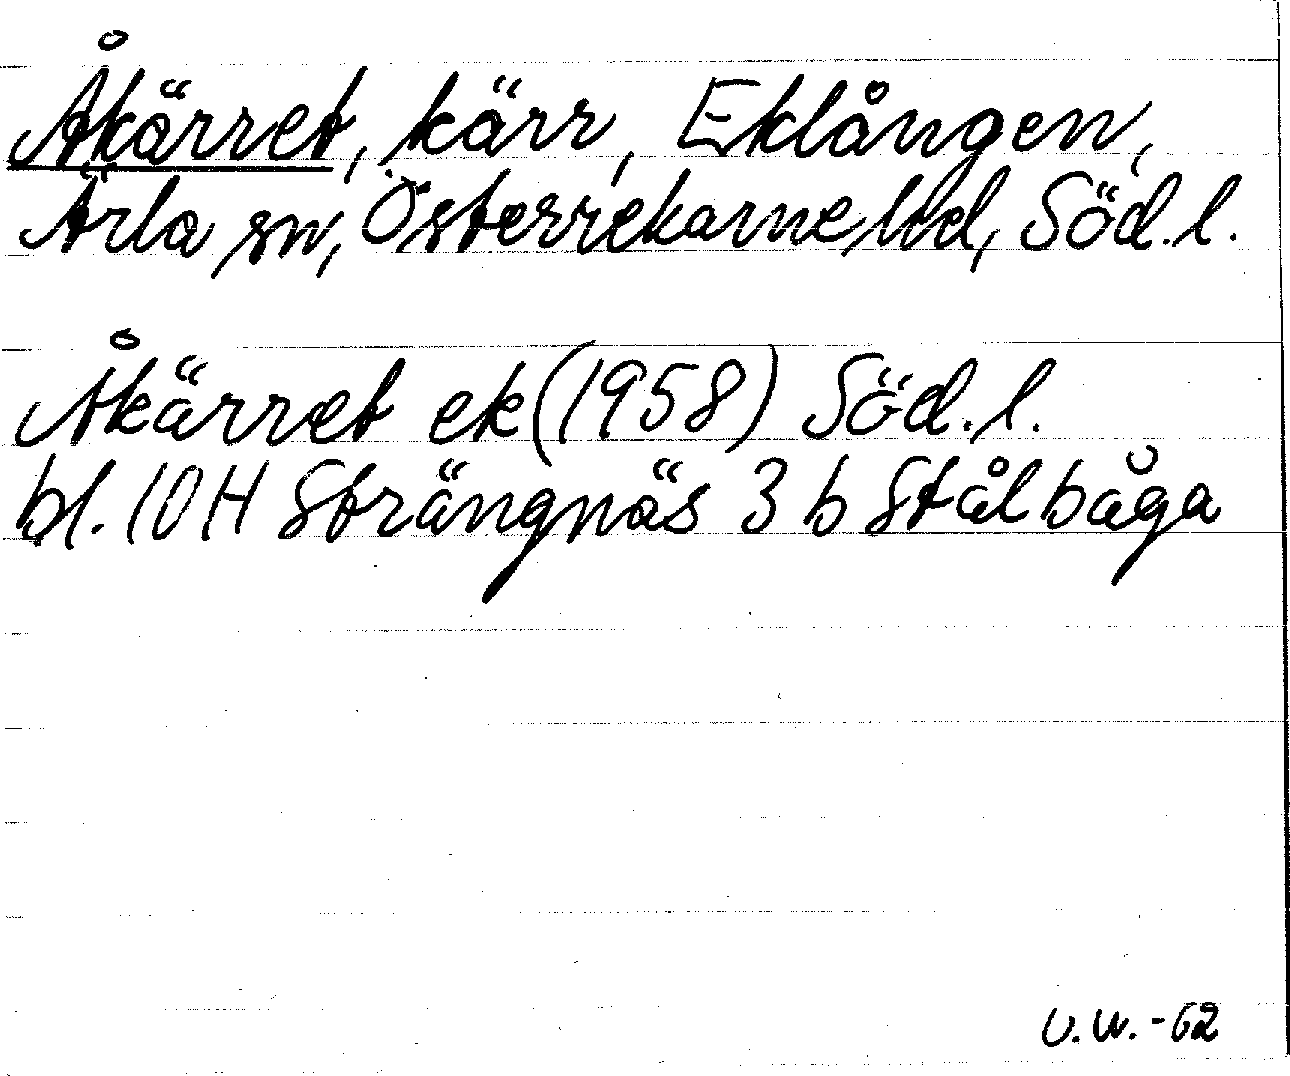 Åkärret, kärr, Eklången,
Ärla sn, Österrekarne hd, Söd. l.
Åkärret ek (1958) Söd. l.
bl. 10 H Strängnäs 3 b Stålbåga
U.W. -62